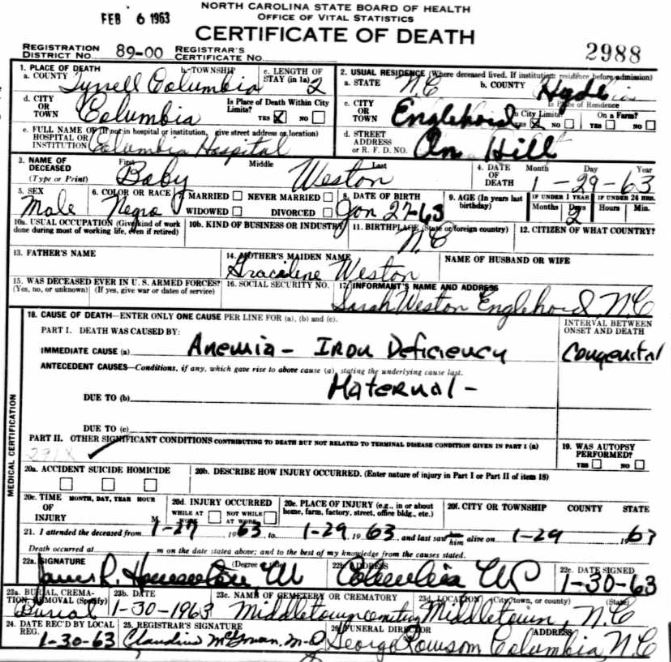 FEB 6 1963
NORTH CAROLINA STATE BOARD OF HEALTH
OFFICE OF VITAL STATISTICS
CERTIFICATE OF DEATH
REGISTRATION DISTRICT NO. 89-00 REGISTRAR'S CERTIFICATE NO. 2988
1. PLACE OF DEATH
a. COUNTY Tyrrell b. TOWNSHIP Columbia c. LENGTH OF STAY (in 1a) 2
2. USUAL RESIDENCE (Where deceased lived. If institution: residence before admission)
a. STATE N.C b. COUNTY Hyde
d. CITY OR TOWN Columbia Is Place of Death Within City Limits? YES X NO
c. CITY OR TOWN Englehard In City Limits? YES NO Is Place of Residence On a Farm? YES NO
e. FULL NAME OF HOSPITAL OR INSTITUTION (If not in hospital or institution, give street address or location) Columbia Hospital
d. STREET ADDRESS OR R. F. D. NO. On Hill
3. NAME OF DECEASED (Type or Print) First Baby Middle Last Weston
4. DATE OF DEATH Month Day Year 1-29-63
5. SEX Male 6. COLOR OR RACE Negro 7. MARRIED NEVER MARRIED WIDOWED DIVORCED
8. DATE OF BIRTH Jan 27-63 9. AGE (In years last birthday) IF UNDER 1 YEAR Months Days 2 IF UNDER 24 HRS. Hours Min.
10a. USUAL OCCUPATION (Give kind of work done during most of working life, even if retired) 10b. KIND OF BUSINESS OR INDUSTRY 11. BIRTHPLACE (State or foreign country) N.C 12. CITIZEN OF WHAT COUNTRY?
13. FATHER'S NAME 14. MOTHER'S MAIDEN NAME Weston NAME OF HUSBAND OR WIFE
15. WAS DECEASED EVER IN U. S. ARMED FORCES? (Yes, no, or unknown) (If yes, give war or dates of service) 16. SOCIAL SECURITY NO. 17. INFORMANT'S NAME AND ADDRESS Sarah Weston Englehard, N.C
MEDICAL CERTIFICATION
18. CAUSE OF DEATH—ENTER ONLY ONE CAUSE PER LINE FOR (a), (b) and (c).
INTERVAL BETWEEN ONSET AND DEATH
PART I. DEATH WAS CAUSED BY:
IMMEDIATE CAUSE (a) Anemia - Iron Deficiency Congenital
ANTECEDENT CAUSES—Conditions, if any, which gave rise to above cause (a), stating the underlying cause last.
DUE TO (b) Maternal -
DUE TO (c)
PART II. OTHER SIGNIFICANT CONDITIONS CONTRIBUTING TO DEATH BUT NOT RELATED TO TERMINAL DISEASE CONDITION GIVEN IN PART I (a)
19. WAS AUTOPSY PERFORMED? YES NO
20a. ACCIDENT SUICIDE HOMICIDE 20b. DESCRIBE HOW INJURY OCCURRED. (Enter nature of injury in Part I or Part II of item 18)
20c. TIME OF INJURY MONTH, DAY, YEAR HOUR M 20d. INJURY OCCURRED WHILE AT WORK NOT WHILE AT WORK 20e. PLACE OF INJURY (e.g., in or about home, farm, factory, street, office bldg., etc.) 20f. CITY OR TOWNSHIP COUNTY STATE
21. I attended the deceased from 1-27 1963, to 1-29, 1963, and last saw him alive on 1-29 1963
Death occurred at m on the date stated above; and to the best of my knowledge from the causes stated.
22a. SIGNATURE (Degree or title) James R. 22b. ADDRESS Columbia NC 22c. DATE SIGNED 1-30-63
23a. BURIAL, CREMATION, REMOVAL (Specify) Burial 23b. DATE 1-30-1963 23c. NAME OF CEMETERY OR CREMATORY Middletown cemetery 23d. LOCATION (City, town, or county) (State) Middletown, N.C
24. DATE REC'D BY LOCAL REG. 1-30-63 25. REGISTRAR'S SIGNATURE Claudius McGowan, M.D 26. FUNERAL DIRECTOR ADDRESS George Rowsom Columbia N.C